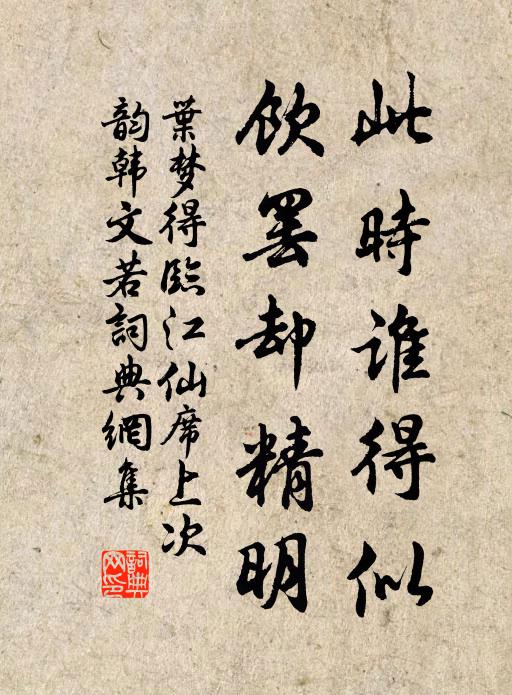 此時誰得似
飲罷却精明
葉梦得臨江仙席上次
韵韩文若詞典網集
詞典
网印